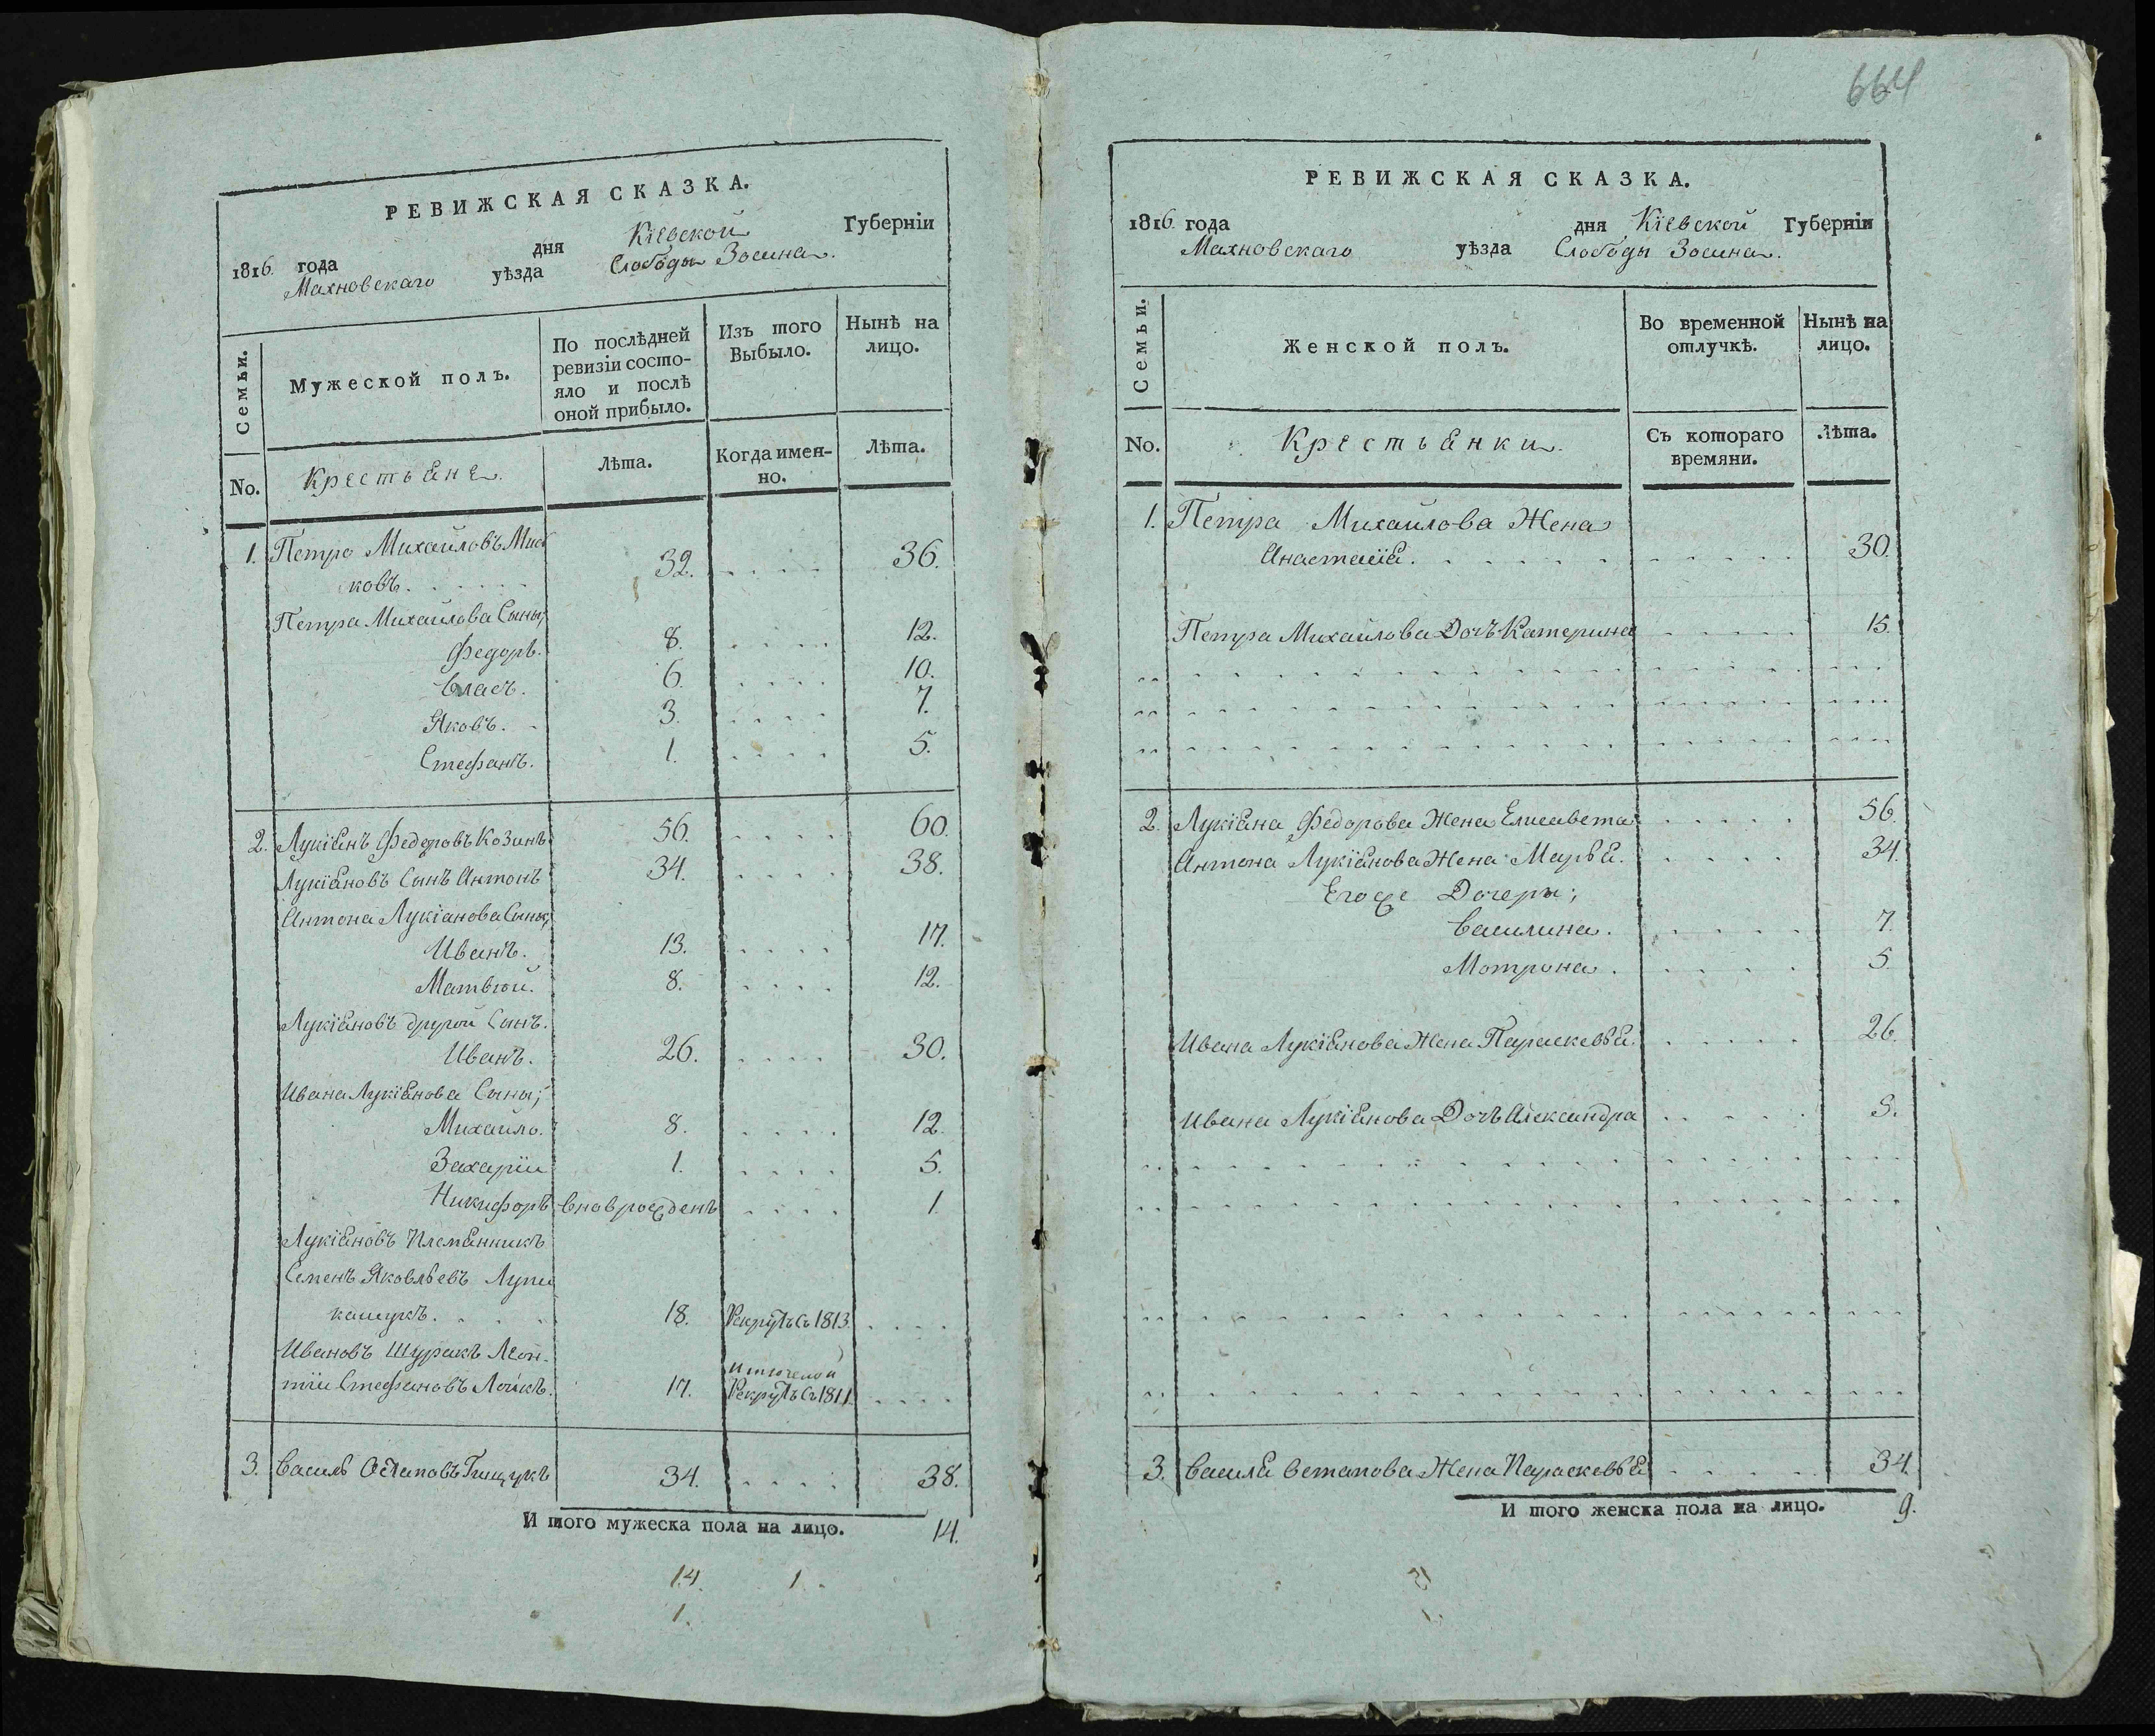 664
РЕВИЖСКАЯ СКАЗКА.
1816 года дня Кіевской Губерніи
Махновскаго уѣзда Слободы Зосина.
Семьи.
Мужеской полъ.
По послѣдней ревизіи состояло и послѣ оной прибыло.
Изъ того Выбыло.
Нынѣ на лицо.
No.
Крестьяне.
Лѣта.
Когда именно.
Лѣта.
1. Петро Михайловъ
ковъ. 32. 36.
Петра Михайлова Сыны;
Федоръ. 8. 12.
Власъ. 6. 10.
Яковъ. 3. 7.
Стефанъ. 1. 5.
2. Лукіянъ Федоровъ Козинъ 56. 60.
Лукіяновъ Сынъ Антонъ 34. 38.
Антона Лукіанова Сыны;
Иванъ. 13. 17.
Матвѣй. 8. 12.
Лукіяновъ другой Сынъ.
Иванъ. 26. 30.
Ивана Лукіянова Сыны;
Михайло. 8. 12.
Захарій 1. 5.
Никифоръ вновърожденъ 1.
Лукіяновъ Племянникъ
Семенъ Яковлевъ
18. Рекрутъ съ 1813.
Ивановъ Шуракъ Леон-
тій Стефановъ 17. Рекрутъ съ 1811.
3. Василь Остаповъ Гищукъ 34. 38.
И того мужеска пола на лицо. 14.
14. 1.
1.
РЕВИЖСКАЯ СКАЗКА.
1816. года дня Кіевской Губерніи
Махновскаго уѣзда Слободы Зосина.
Семьи.
Женской полъ.
Во временной отлучкѣ.
Нынѣ на лицо.
No.
Крестьянки.
Съ котораго времяни.
Лѣта.
1. Петра Михайлова Жена
Анастасія. 30.
Петра Михайлова Дочъ Катерина 15.
2. Лукіяна Федорова Жена Елисавета 56.
Антона Лукіянова Жена Марья. 34.
Егоже Дочери;
Василина. 7.
Мотрона. 5.
Ивана Лукіянова Жена Параскевья. 26.
Ивана Лукіянова Дочъ Александра 3.
3. Василя Остапова Жена Параскевья 34.
И того женска пола на лицо. 9.